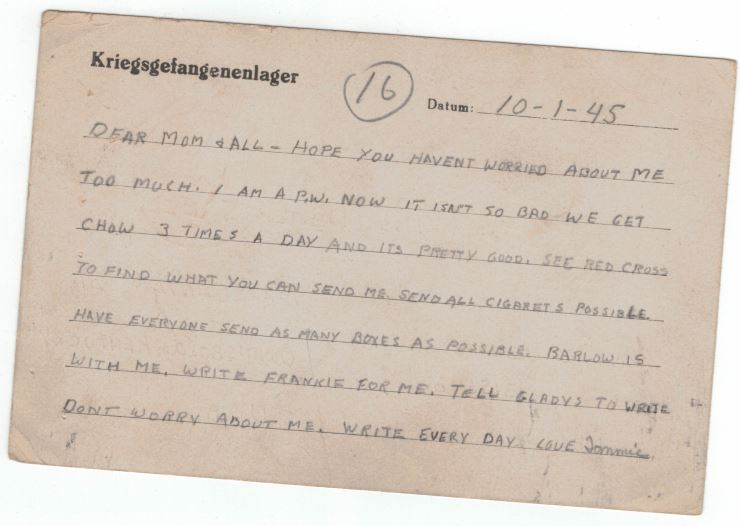 Kriegsgefangenenlager
16
Datum: 10-1-45
DEAR MOM & ALL - HOPE YOU HAVENT WORRIED ABOUT ME
TOO MUCH. I AM A P.W. NOW IT ISN'T SO BAD WE GET
CHOW 3 TIMES A DAY AND ITS PRETTY GOOD. SEE RED CROSS
TO FIND WHAT YOU CAN SEND ME. SEND ALL CIGARETS POSSIBLE.
HAVE EVERYONE SEND AS MANY BOXES AS POSSIBLE. BARLOW IS
WITH ME. WRITE FRANKIE FOR ME. TELL GLADYS TO WRITE
DONT WORRY ABOUT ME. WRITE EVERY DAY LOVE Tommie